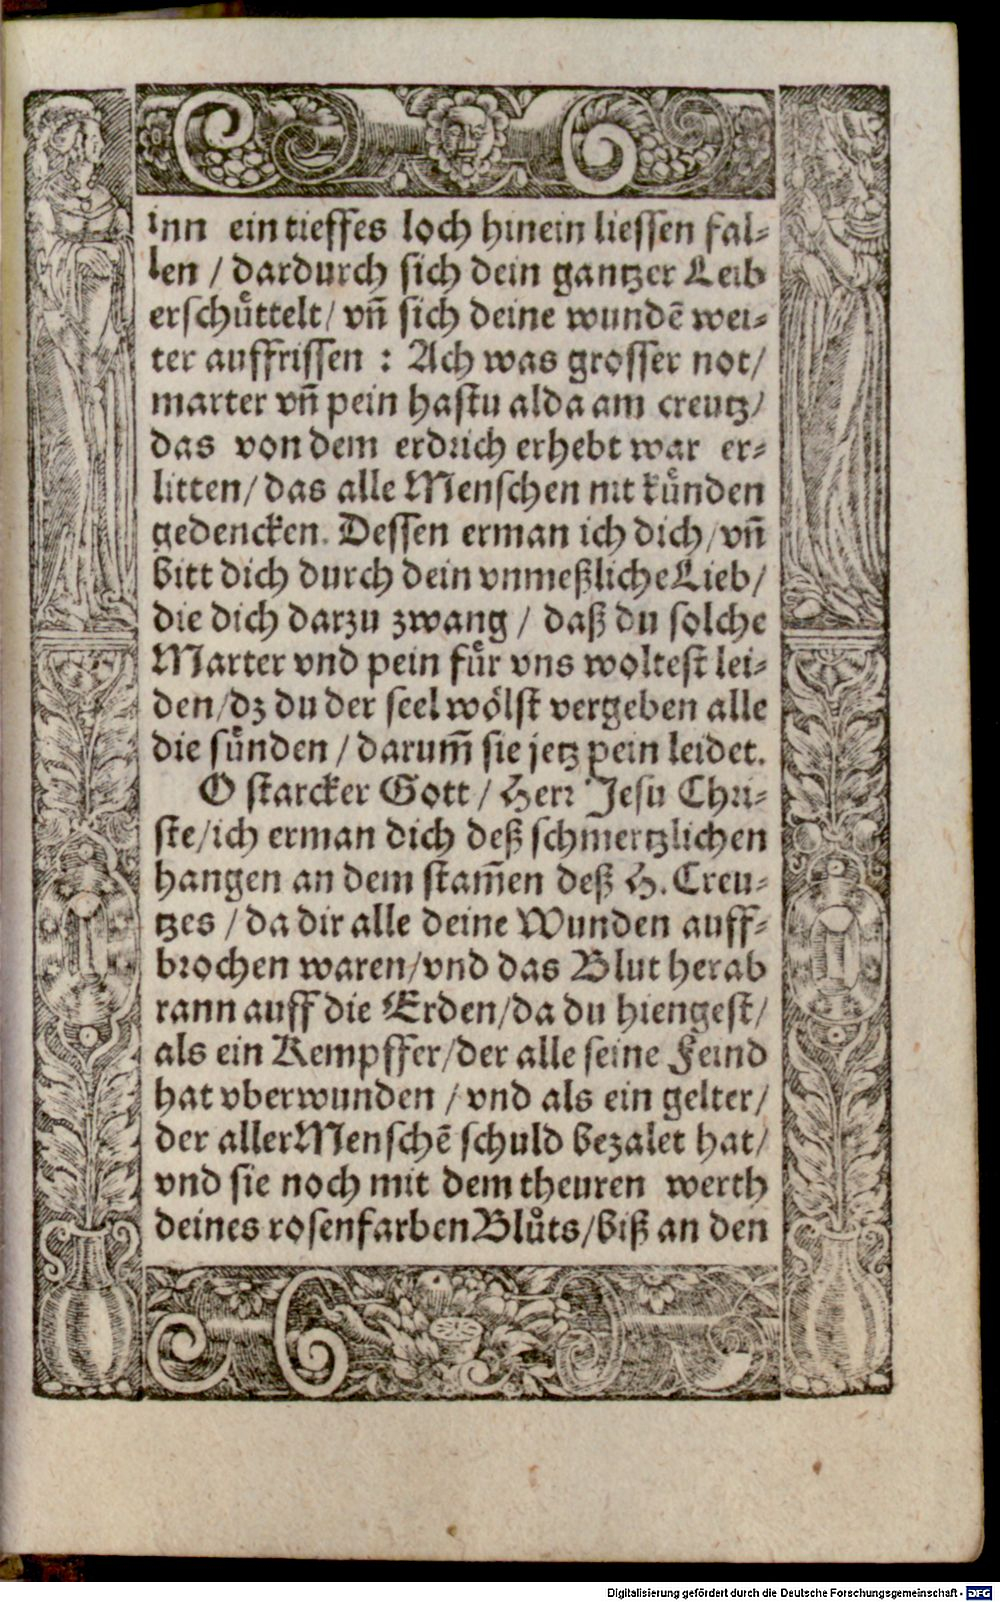 inn ein tieffes loch hinein liessen fal⸗
len / dardurch sich dein gantzer Leib
erschuͤttelt / vn̄ sich deine wundē wei⸗
ter auffrissen : Ach was grosser not /
marter vn̄ pein hastu alda am creutz /
das von dem erdrich erhebt war er⸗
litten / das alle Menschen nit kuͤnden
gedencken. Dessen erman ich dich / vn̄
bitt dich durch dein vnmeßliche Lieb /
die dich darzu zwang / daß du solche
Marter vnd pein fuͤr vns woltest lei⸗
den / dz du der seel woͤlst vergeben alle
die suͤnden / darum̄ sie jetz pein leidet.
O starcker Gott / Herr Jesu Chri⸗
ste / ich erman dich deß schmertzlichen
hangen an dem stam̄en deß H. Creu⸗
tzes / da dir alle deine Wunden auff⸗
brochen waren / vnd das Blut herab
rann auff die Erden / da du hiengest /
als ein Kempffer / der alle seine Feind
hat vberwunden / vnd als ein gelter /
der aller Menschē schuld bezalet hat /
vnd sie noch mit dem theuren werth
deines rosenfarben Bluͦts / biß an den
Digitalisierung gefördert durch die Deutsche Forschungsgemeinschaft - DFG